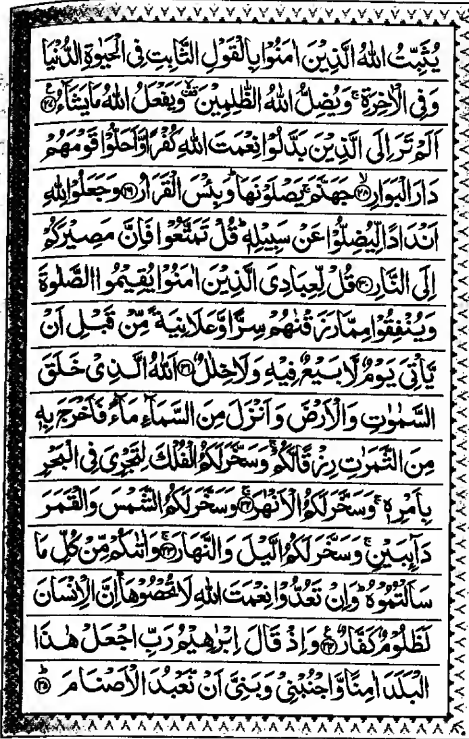 یُثَبِّتُ اللهُ الَّذِیْنَ اٰمَنُوْا بِالْقَوْلِ الثَّابِتِ فِی الْحَیٰوةِ الدُّنْیَا
وَفِی الْاٰخِرَةِ ۚ وَیُضِلُّ اللهُ الظّٰلِمِیْنَ ۙ وَیَفْعَلُ اللهُ مَا یَشَآءُ ﴿۲۷﴾
اَلَمْ تَرَ اِلَی الَّذِیْنَ بَدَّلُوْا نِعْمَتَ اللهِ كُفْرًا وَّاَحَلُّوْا قَوْمَهُمْ
دَارَ الْبَوَارِ ﴿۲۸﴾ جَهَنَّمَ ۚ یَصْلَوْنَهَا ؕ وَبِئْسَ الْقَرَارُ ﴿۲۹﴾ وَجَعَلُوْا لِلّٰهِ
اَنْدَادًا لِّیُضِلُّوْا عَنْ سَبِیْلِهٖ ؕ قُلْ تَمَتَّعُوْا فَاِنَّ مَصِیْرَكُمْ
اِلَی النَّارِ ﴿۳۰﴾ قُلْ لِّعِبَادِیَ الَّذِیْنَ اٰمَنُوْا یُقِیْمُوا الصَّلٰوةَ
وَیُنْفِقُوْا مِمَّا رَزَقْنٰهُمْ سِرًّا وَّعَلَانِیَةً مِّنْ قَبْلِ اَنْ
یَّاْتِیَ یَوْمٌ لَّا بَیْعٌ فِیْهِ وَلَا خِلٰلٌ ﴿۳۱﴾ اَللهُ الَّذِیْ خَلَقَ
السَّمٰوٰتِ وَالْاَرْضَ وَاَنْزَلَ مِنَ السَّمَآءِ مَآءً فَاَخْرَجَ بِهٖ
مِنَ الثَّمَرٰتِ رِزْقًا لَّكُمْ ۚ وَسَخَّرَ لَكُمُ الْفُلْكَ لِتَجْرِیَ فِی الْبَحْرِ
بِاَمْرِهٖ ۚ وَسَخَّرَ لَكُمُ الْاَنْهٰرَ ﴿۳۲﴾ وَسَخَّرَ لَكُمُ الشَّمْسَ وَالْقَمَرَ
دَآىِٕبَیْنِ ۚ وَسَخَّرَ لَكُمُ الَّیْلَ وَالنَّهَارَ ﴿۳۳﴾ وَاٰتٰىكُمْ مِّنْ كُلِّ مَا
سَاَلْتُمُوْهُ ؕ وَاِنْ تَعُدُّوْا نِعْمَتَ اللهِ لَا تُحْصُوْهَا ؕ اِنَّ الْاِنْسَانَ
لَظَلُوْمٌ كَفَّارٌ ﴿۳۴﴾ وَاِذْ قَالَ اِبْرٰهِیْمُ رَبِّ اجْعَلْ هٰذَا
الْبَلَدَ اٰمِنًا وَّاجْنُبْنِیْ وَبَنِیَّ اَنْ نَّعْبُدَ الْاَصْنَامَ ﴿۳۵﴾